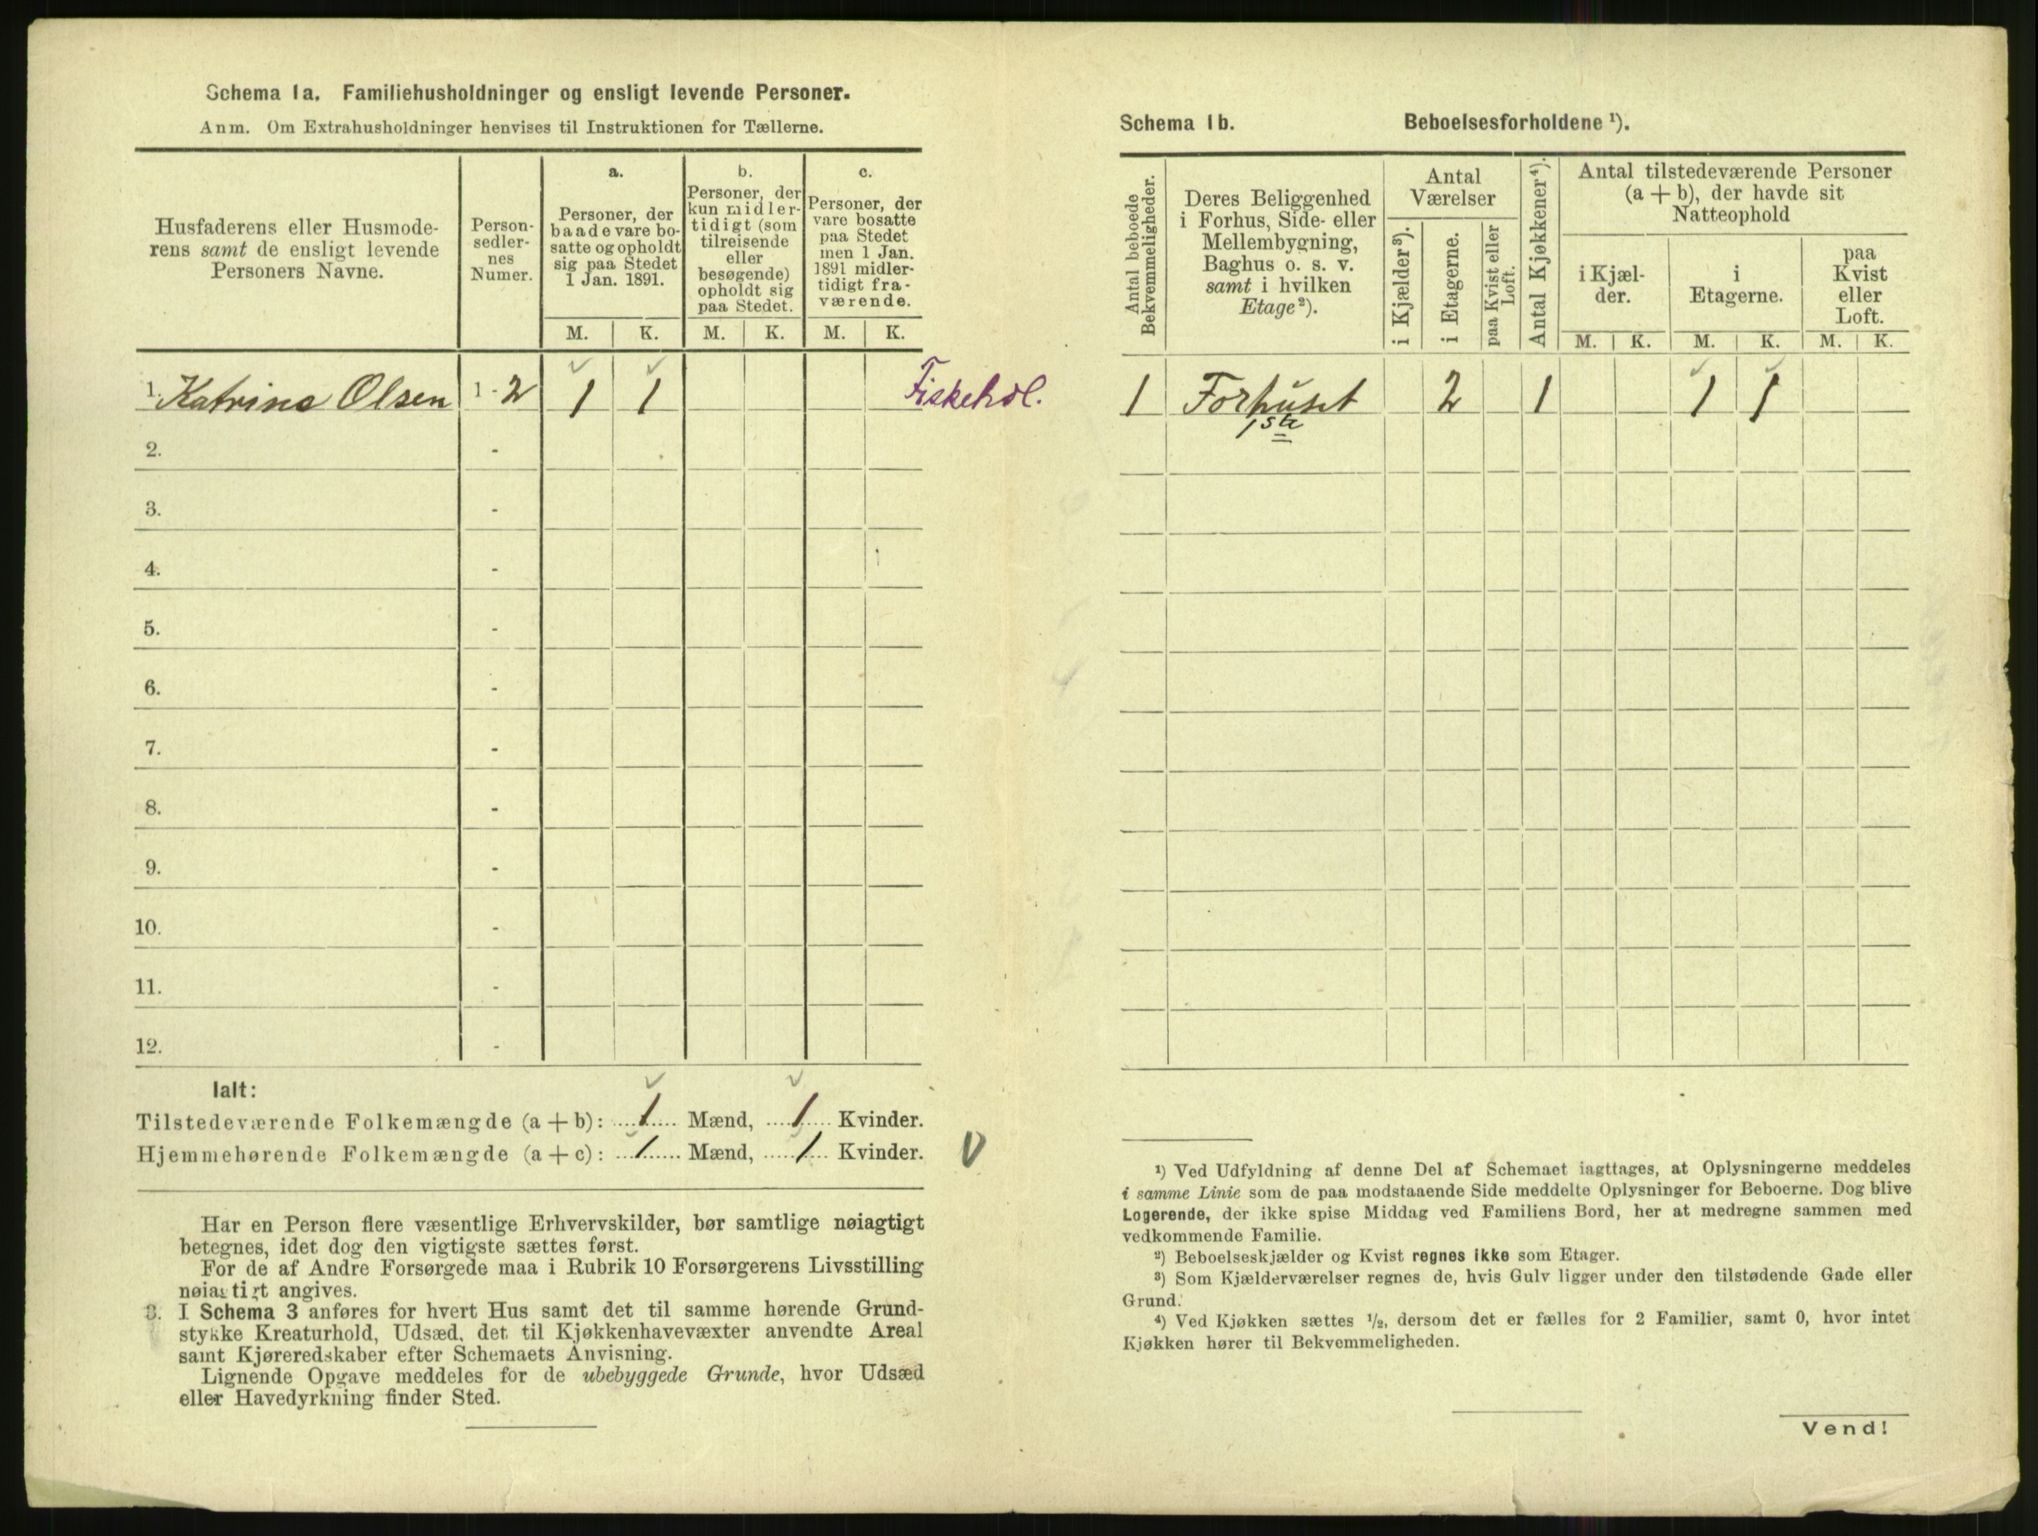 Schema 1a. Familiehusholdninger og ensligt levende Personer.
Anm. Om Extrahusholdninger henvises til Instruktionen for Tællerne.
Husfaderens eller Husmode-
rens samt de ensligt levende
Personers Navne.
Person-
sedler-
nes
Numer.
a.
Personer, der
baade vare bo-
satte og opholdt
sig paa Stedet
1 Jan. 1891.
b.
Personer, der
kun midler-
tidigt (som
tilreisende
eller
besøgende)
opholdt sig
paa Stedet.
c.
Personer, der
vare bosatte
paa Stedet
men 1 Jan.
1891 midler-
tidigt fra-
værende.
M. K. M. K. M. K.
1. Katrine Olsen 1-2 1 1 Fiskehdl.
2. -
3. -
4. -
5. -
6. -
7. -
8. -
9. -
10. -
11. -
12. -
Ialt:
Tilstedeværende Folkemængde (a+b): 1 Mænd, 1 Kvinder.
Hjemmehørende Folkemængde (a+c): 1 Mænd, 1 Kvinder.
Har en Person flere væsentlige Erhvervskilder, bør samtlige nøiagtigt
betegnes, idet dog den vigtigste sættes først.
For de af Andre Forsørgede maa i Rubrik 10 Forsørgerens Livsstilling
nøiagtigt angives.
3. I Schema 3 anføres for hvert Hus samt det til samme hørende Grund-
stykke Kreaturhold, Udsæd, det til Kjøkkenhavevæxter anvendte Areal
samt Kjøreredskaber efter Schemaets Anvisning.
Lignende Opgave meddeles for de ubebyggede Grunde, hvor Udsæd
eller Havedyrkning finder Sted.
Schema 1b. Beboelsesforholdene ¹).
Antal beboede
Bekvemmeligheder.
Deres Beliggenhed
i Forhus, Side- eller
Mellembygning,
Baghus o. s. v.
samt i hvilken
Etage²).
Antal
Værelser
i Kjælder³).
i Etagerne.
paa Kvist eller
Loft.
Antal Kjøkkener⁴).
Antal tilstedeværende Personer
(a + b), der havde sit
Natteophold
i Kjæl-
der.
i
Etagerne.
paa
Kvist
eller
Loft.
M. K. M. K. M. K.
1 Forhuset 2 1 1 1
1ste
¹) Ved Udfyldning af denne Del af Schemaet iagttages, at Oplysningerne meddeles
i samme Linie som de paa modstaaende Side meddelte Oplysninger for Beboerne. Dog blive
Logerende, der ikke spise Middag ved Familiens Bord, her at medregne sammen med
vedkommende Familie.
²) Beboelseskjælder og Kvist regnes ikke som Etager.
³) Som Kjælderværelser regnes de, hvis Gulv ligger under den tilstødende Gade eller
Grund.
⁴) Ved Kjøkken sættes ½, dersom det er fælles for 2 Familier, samt 0, hvor intet
Kjøkken hører til Bekvemmeligheden.
Vend!